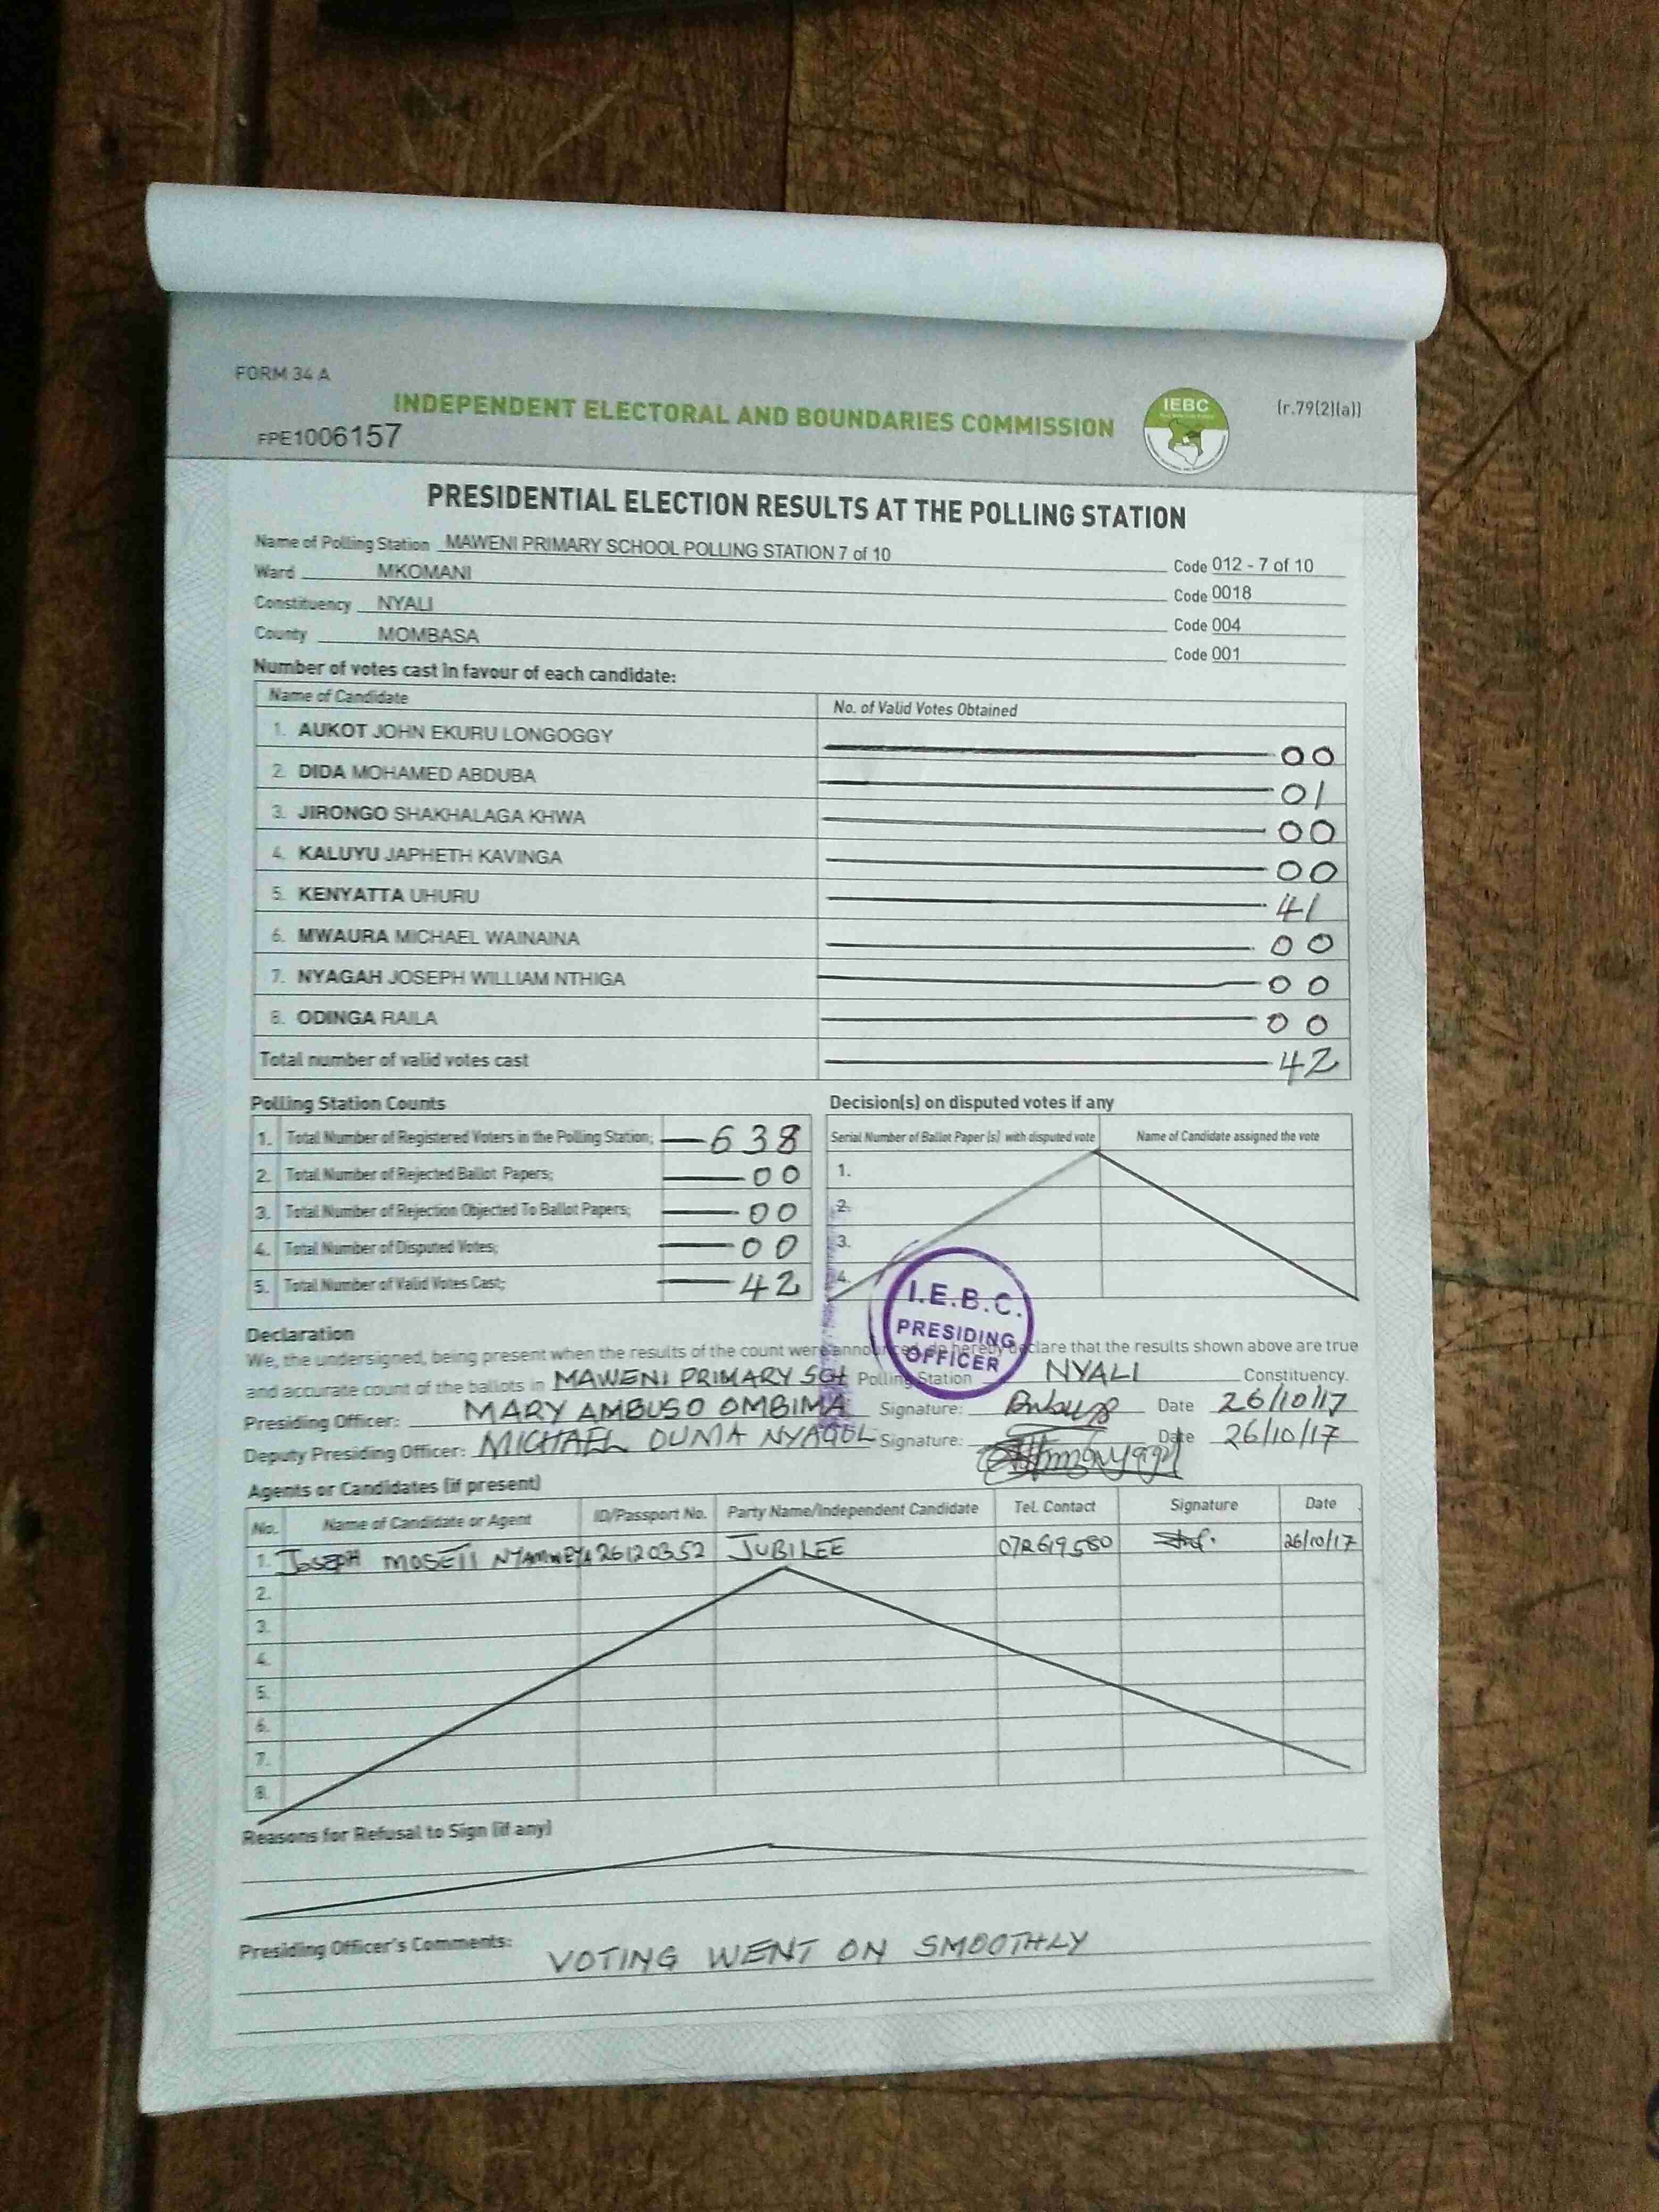 FORM 34 A
INDEPENDENT ELECTORAL AND BOUNDARIES COMMISSION
IEBC
(r.79(2)(a))
FPE1006157
PRESIDENTIAL ELECTION RESULTS AT THE POLLING STATION
Name of Polling Station MAWENI PRIMARY SCHOOL POLLING STATION 7 of 10 Code 012 - 7 of 10
Ward MKOMANI Code 0018
Constituency NYALI Code 004
County MOMBASA Code 001
Number of votes cast in favour of each candidate:
Name of Candidate No. of Valid Votes Obtained
1. AUKOT JOHN EKURU LONGOGGY 00
2. DIDA MOHAMED ABDUBA 01
3. JIRONGO SHAKHALAGA KHWA 00
4. KALUYU JAPHETH KAVINGA 00
5. KENYATTA UHURU 41
6. MWAURA MICHAEL WAINAINA 00
7. NYAGAH JOSEPH WILLIAM NTHIGA 00
8. ODINGA RAILA 00
Total number of valid votes cast 42
Polling Station Counts
1. Total Number of Registered Voters in the Polling Station; 638
2. Total Number of Rejected Ballot Papers; 00
3. Total Number of Rejection Objected To Ballot Papers; 00
4. Total Number of Disputed Votes; 00
5. Total Number of Valid Votes Cast; 42
Decision(s) on disputed votes if any
Serial Number of Ballot Paper (s) with disputed vote Name of Candidate assigned the vote
1.
2.
3.
4.
I.E.B.C.
PRESIDING
OFFICER
Declaration
We, the undersigned, being present when the results of the count were announced, do hereby declare that the results shown above are true
and accurate count of the ballots in MAWENI PRIMARY SCH Polling Station NYALI Constituency.
Presiding Officer: MARY AMBUSO OMBIMA Signature: Date 26/10/17
Deputy Presiding Officer: MICHAEL OUMA NYAGOL Signature: Date 26/10/17
Agents or Candidates (if present)
No. Name of Candidate or Agent ID/Passport No. Party Name/Independent Candidate Tel. Contact Signature Date
1. JOSEPH MOSETI NYAMWEYA 26120352 JUBILEE 26/10/17
2.
3.
4.
5.
6.
7.
8.
Reasons for Refusal to Sign (if any)
Presiding Officer's Comments: VOTING WENT ON SMOOTHLY